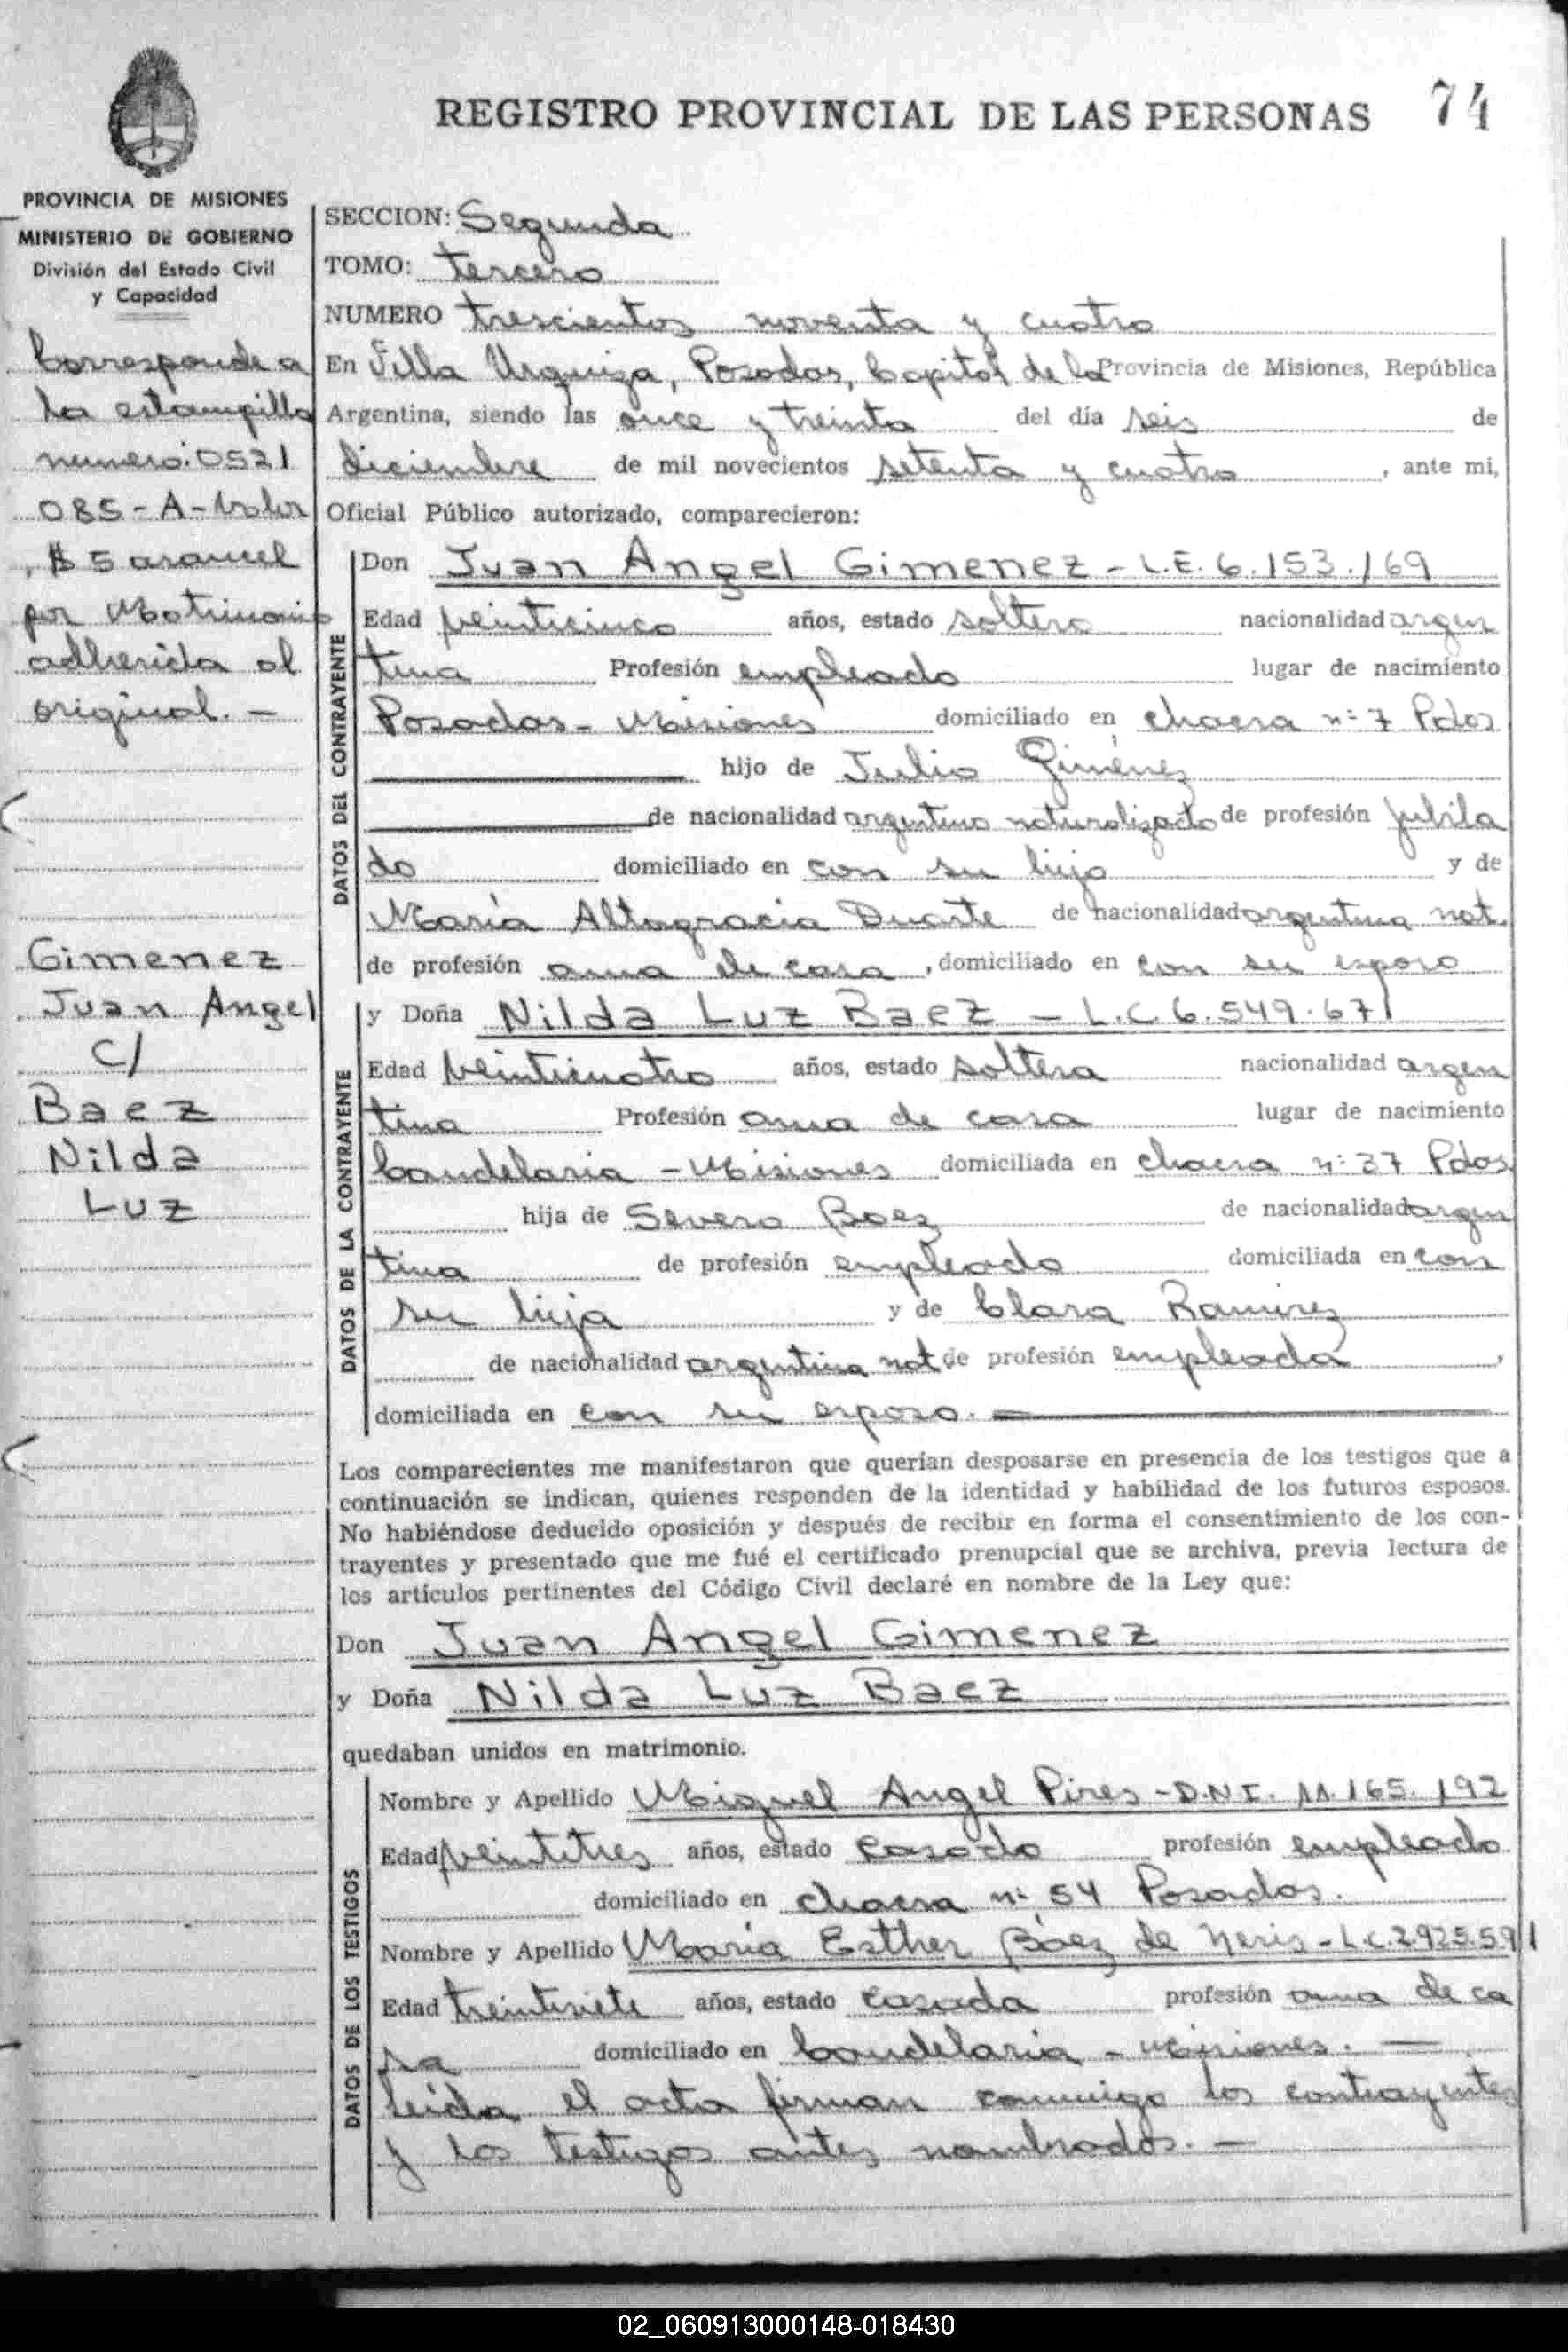 REGISTRO PROVINCIAL DE LAS PERSONAS 74
PROVINCIA DE MISIONES
MINISTERIO DE GOBIERNO
División del Estado Civil
y Capacidad
Corresponde a
la estampilla
numero: 0521
085-A-Valor
$5 arancel
por Matrimonio
adherida al
original. -
Gimenez
Juan Angel
C/
Baez
Nilda
Luz
SECCION: Segunda
TOMO: tercero
NUMERO trescientos noventa y cuatro
En Villa Urquiza, Posadas, Capital de la Provincia de Misiones, República
Argentina, siendo las once y treinta del día seis de
diciembre de mil novecientos setenta y cuatro, ante mi,
Oficial Público autorizado, comparecieron:
DATOS DEL CONTRAYENTE
Don Juan Angel Gimenez - L.E. 6.153.169
Edad veinticinco años, estado soltero nacionalidad argen
tina Profesión empleado lugar de nacimiento
Posadas - Misiones domiciliado en chacra nº 7 Pdas
hijo de Julio Giménez
de nacionalidad argentino naturalizado de profesión jubila
do domiciliado en con su hijo y de
María Altagracia Duarte de nacionalidad argentina nat.
de profesión ama de casa, domiciliado en con su esposo
DATOS DE LA CONTRAYENTE
y Doña Nilda Luz Baez - L.C. 6.549.671
Edad veinticuatro años, estado soltera nacionalidad argen
tina Profesión ama de casa lugar de nacimiento
Candelaria - Misiones domiciliada en chacra nº 37 Pdas
hija de Severo Baez de nacionalidad argen
tina de profesión empleado domiciliada en con
su hija y de Clara Ramirez
de nacionalidad argentina nat de profesión empleada,
domiciliada en con su esposo.
Los comparecientes me manifestaron que querían desposarse en presencia de los testigos que a
continuación se indican, quienes responden de la identidad y habilidad de los futuros esposos.
No habiéndose deducido oposición y después de recibir en forma el consentimiento de los con-
trayentes y presentado que me fué el certificado prenupcial que se archiva, previa lectura de
los artículos pertinentes del Código Civil declaré en nombre de la Ley que:
Don Juan Angel Gimenez
y Doña Nilda Luz Baez
quedaban unidos en matrimonio.
DATOS DE LOS TESTIGOS
Nombre y Apellido Miguel Angel Pires - D.N.I. 11.165.192
Edad veintitres años, estado casado profesión empleado
domiciliado en chacra nº 54 Posadas.
Nombre y Apellido María Esther Báez de Neris - L.C. 2.925.591
Edad treintisiete años, estado casada profesión ama de ca
sa domiciliado en Candelaria - Misiones. -
leída el acta firman conmigo los contrayentes
y los testigos antes nombrados. -
02_060913000148-018430